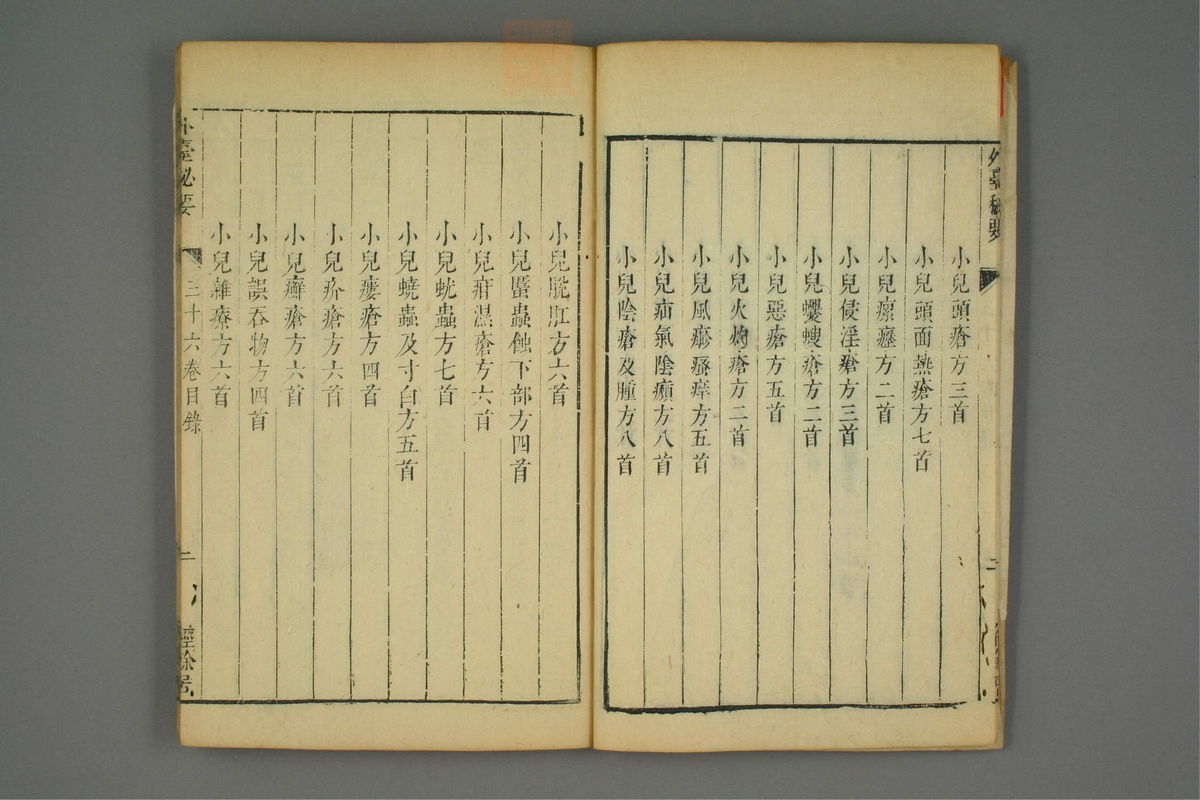 外臺秘要
小兒頭瘡方三首
小兒頭面熱瘡方七首
小兒瘰癧方二首
小兒侵淫瘡方三首
小兒蠼螋瘡方二首
小兒惡瘡方五首
小兒火灼瘡方二首
小兒風㿇癮㾦方五首
小兒疝氣陰㿗方八首
小兒陰瘡及腫方八首
二
小兒脫肛方六首
小兒䘌蟲蝕下部方四首
小兒疳濕瘡方六首
小兒蚘蟲方七首
小兒蟯蟲及寸白方五首
小兒瘻瘡方四首
小兒疥瘡方六首
小兒癬瘡方六首
小兒誤吞物方四首
小兒雜療方六首
外臺秘要
三十六卷目錄
二
經餘居